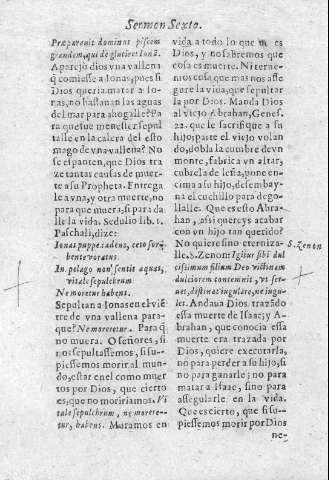 Sermon Sexto.
Præparauit dominus piscem
grandem, qui deglutiret Ionã.
Aparejò dios vna vallena
q̃ comiesse a Ionas; pues si
Dios queria matar a Io-
nas, no bastauan las aguas
del mar para ahogalle? Pa
ra que fue menester sepul
talle en la calera del esto
mago de vna vallena? No
se espanten, que Dios tra
ze tantas causas de muer-
te a su Propheta. Entrega
le a vna, y otra muerte, no
para que muera, si para da
lle la vida. Sedulio lib. 1.
Paschali, dize:
Ionas puppe cadens, ceto sorbente voratus
In pelago non sentit aquas,
vitale sepulchrum
Ne moretur habens.
Sepultan a Ionas en el vie
tre de vna vallena para-
que? Ne moreretur. Para q̃
no muera. O señores, si
nos sepultassemos, si su-
piessemos morir al mun-
do, estar en el como muer
tos por Dios, que cierto
es, que no moririamos. Vi
tale sepulchrum, ne morere-
tur, habens. Muramos en
vida a todo lo que no es
Dios, y no sabremos que
cosa es muerte. Ni terne-
mos cosa que mas nos asse
gure la vida, que sepultar
la por Dios. Manda Dios
al viejo Abrahan, Genes.
22. que le sacrifique a su
hijo; parte el viejo volan
do, dobla la cumbre de vn
monte, fabrica vn altar,
cubrela de leña, pone en-
cima a su hijo, desembay-
na el cuchillo para dego-
llalle. Que es esto Abra-
han, assi quereys acabar
con vn hijo tan querido?
No quiere sino eterniza-
lle. S. Zenon: Igitur sibi dul
cissimum filium Deo victimam
dulciorem contemnit, vt ser-
uet, destinat iugulare, ne iugu-
let. Andaua Dios trazãdo
essa muerte de Isaac; y A-
brahan, que conocia essa
muerte era trazada por
Dios, quiere executarla,
no para perder a su hijo, si
no para ganarle; no para
matar a Isaac, sino para
assegurarle en la vida.
Que es cierto, que si su-
piessemos morir por Dios
ne-
S. Zenon